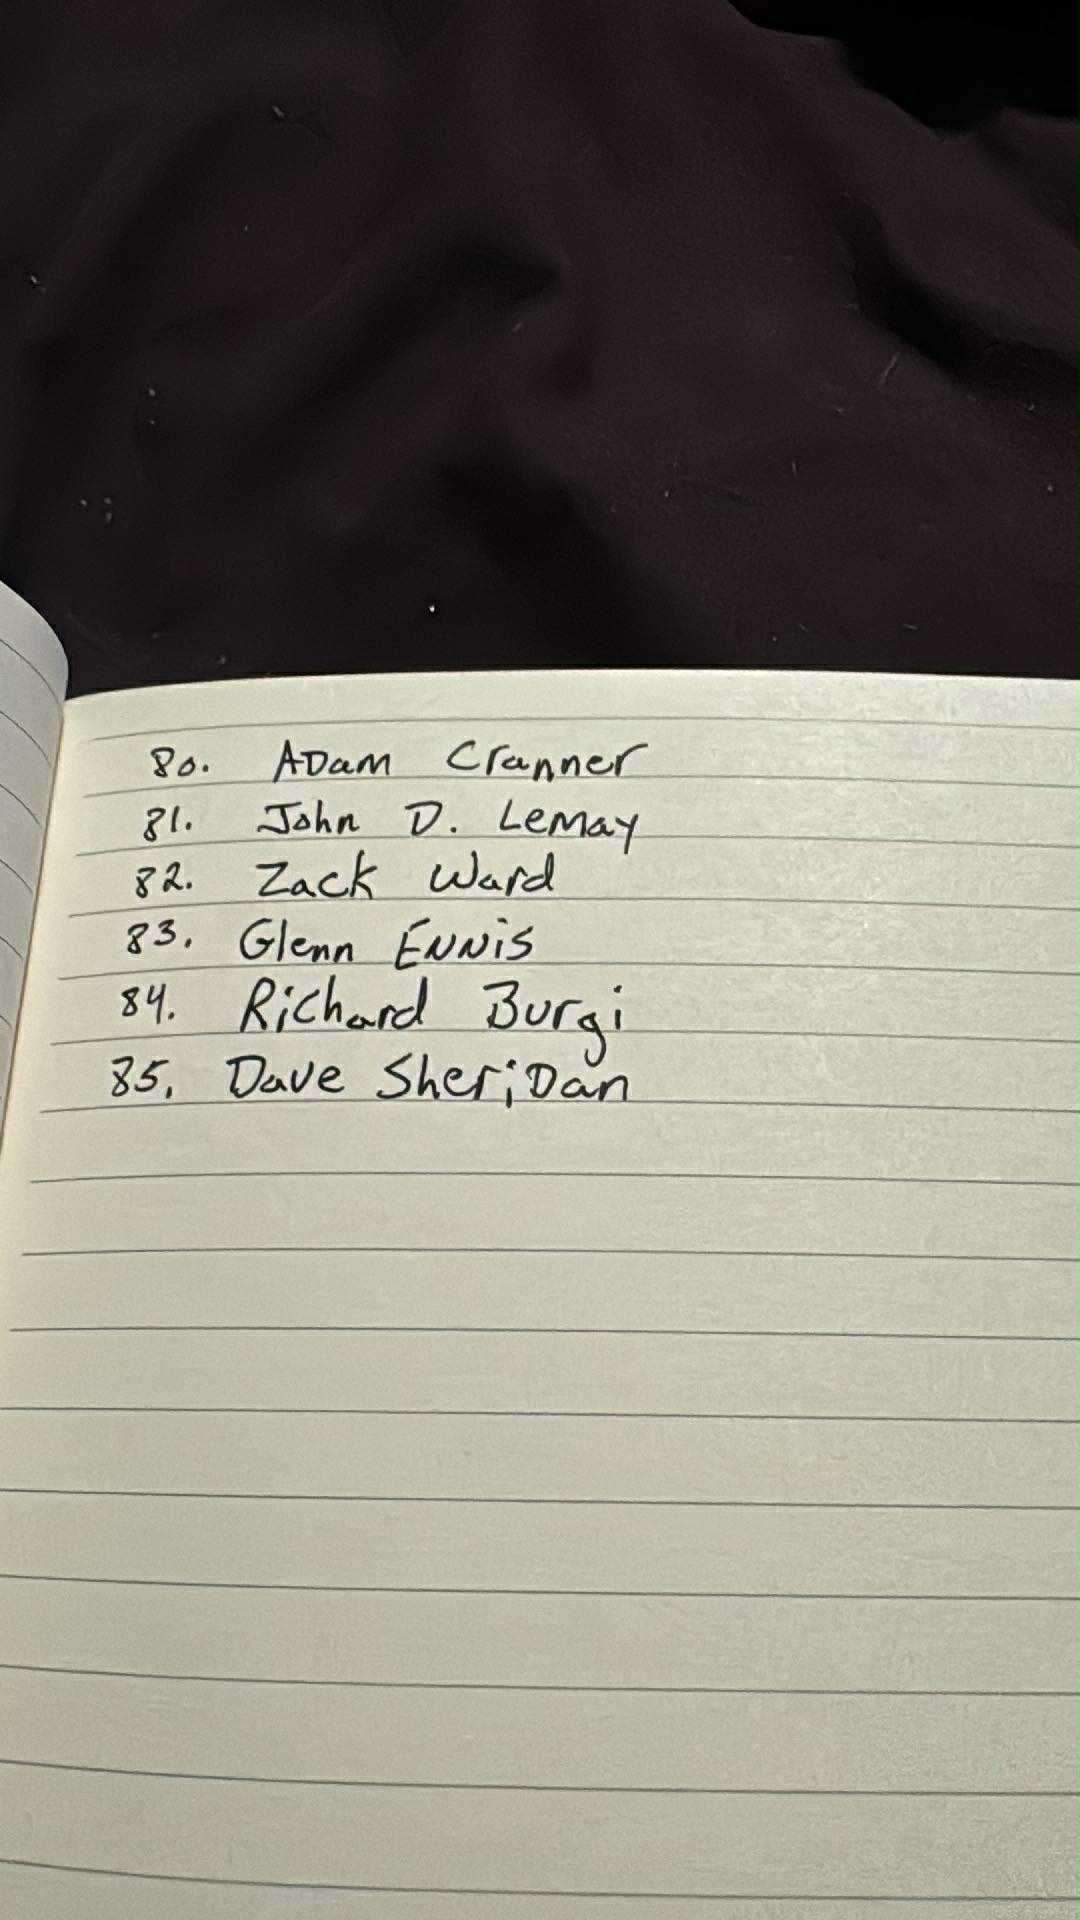 80. Adam Cranner
81. John D. LeMay
82. Zack Ward
83. Glenn Ennis
84. Richard Burgi
85. Dave Sheridan